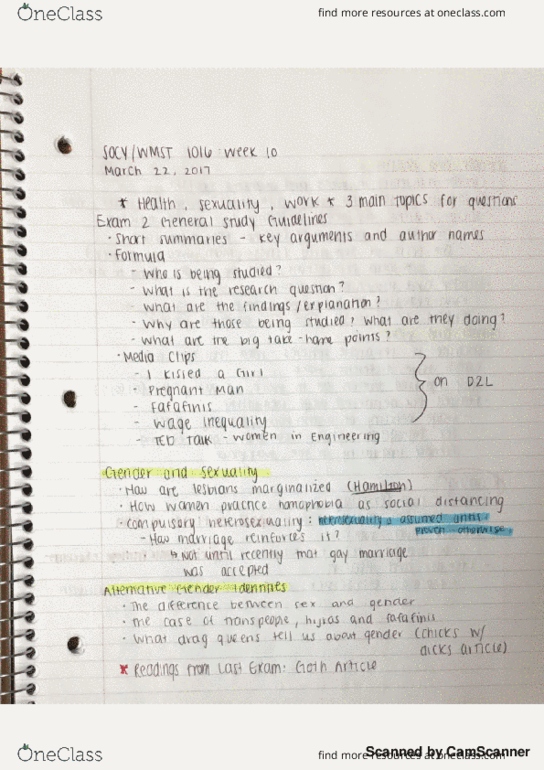 OneClass
find more resources at oneclass.com
SOCY/WMST 1016 Week 10
March 22, 2017
* Health, sexuality, work * 3 main topics for questions
Exam 2 General Study Guidelines
· Short summaries - key arguments and author names
· Formula
- Who is being studied?
- What is the research question?
- What are the findings/explanation?
- Why are those being studied? What are they doing?
- What are the big take-home points?
· Media Clips
- I Kissed a Girl
- Pregnant Man
- Fafafinis
- Wage Inequality
- TED Talk - Women in Engineering
} on D2L
Gender and Sexuality
· How are lesbians marginalized (Hamilton)
· How women practice homophobia as social distancing
· Compulsory heterosexuality: heterosexuality is assumed until
proven otherwise
- How marriage reinforces it?
↳ Not until recently that gay marriage
was accepted
Alternative Gender Identities
· The difference between sex and gender
· The case of transpeople, hijras and fafafinis
· What drag queens tell us about gender (chicks w/
dicks article)
* Readings from Last Exam: Goth Article
OneClass
find more resources at oneclass.com
Scanned by CamScanner